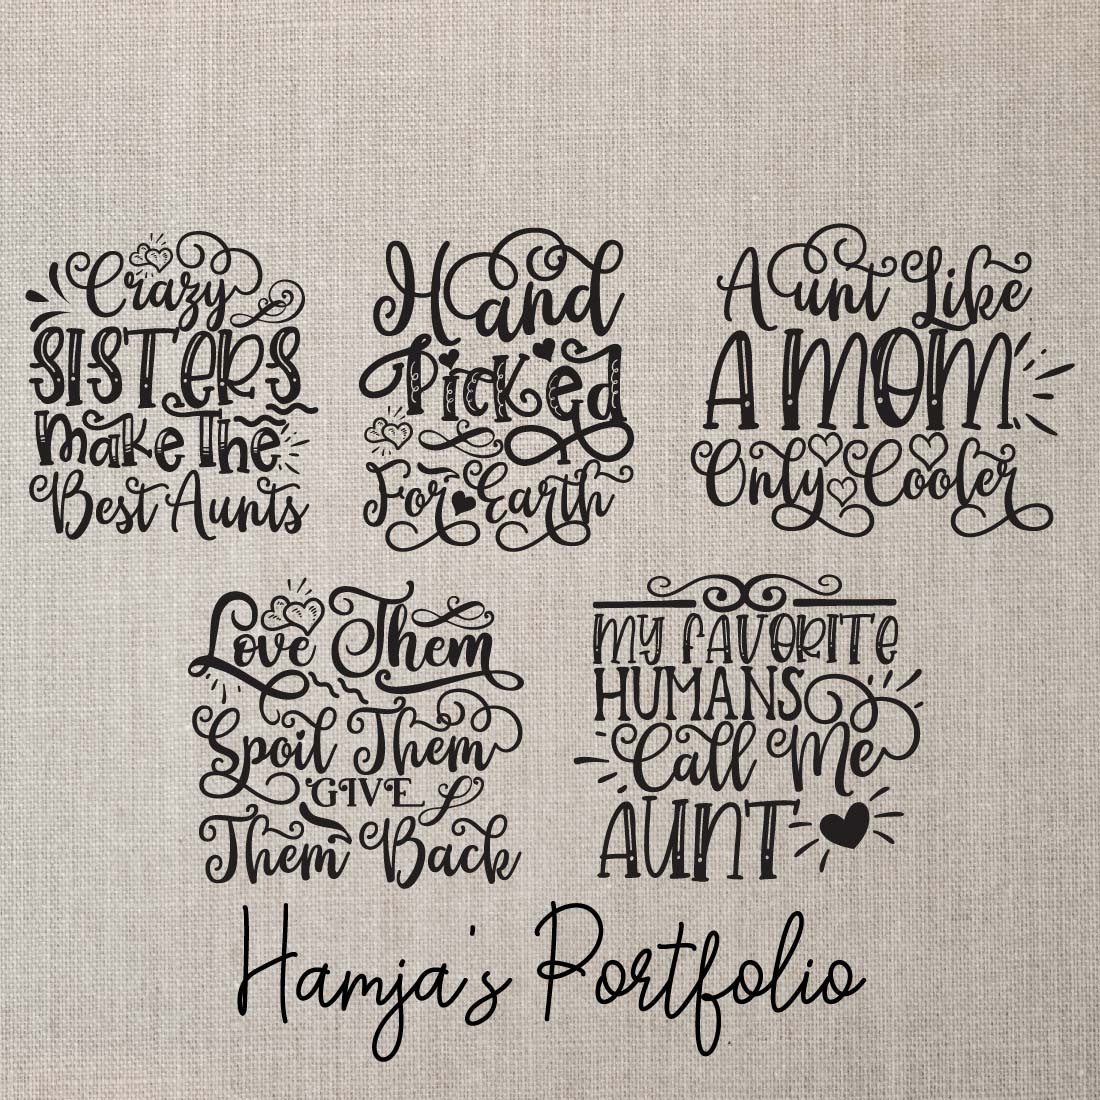 Crazy
SISTERS
Make The
Best Aunts
Hand
Picked
For Earth
Aunt Like
A MOM
Only Cooler
Love Them
Spoil Them
GIVE
Them Back
MY FAVORITE
HUMANS
Call Me
AUNT
Hamja's Portfolio